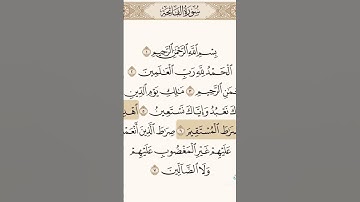 سُورَةُ الفَاتِحَةِ
بِسْمِ ٱللَّهِ ٱلرَّحْمَٰنِ ٱلرَّحِيمِ ١
ٱلْحَمْدُ لِلَّهِ رَبِّ ٱلْعَٰلَمِينَ ٢
حْمَٰنِ ٱلرَّحِيمِ ٣ مَٰلِكِ يَوْمِ ٱلدِّينِ
كَ نَعْبُدُ وَإِيَّاكَ نَسْتَعِينُ ٥ ٱهْدِ
صِّرَٰطَ ٱلْمُسْتَقِيمَ ٦ صِرَٰطَ ٱلَّذِينَ أَنْعَمْ
عَلَيْهِمْ غَيْرِ ٱلْمَغْضُوبِ عَلَيْهِمْ
وَلَا ٱلضَّآلِّينَ ٧